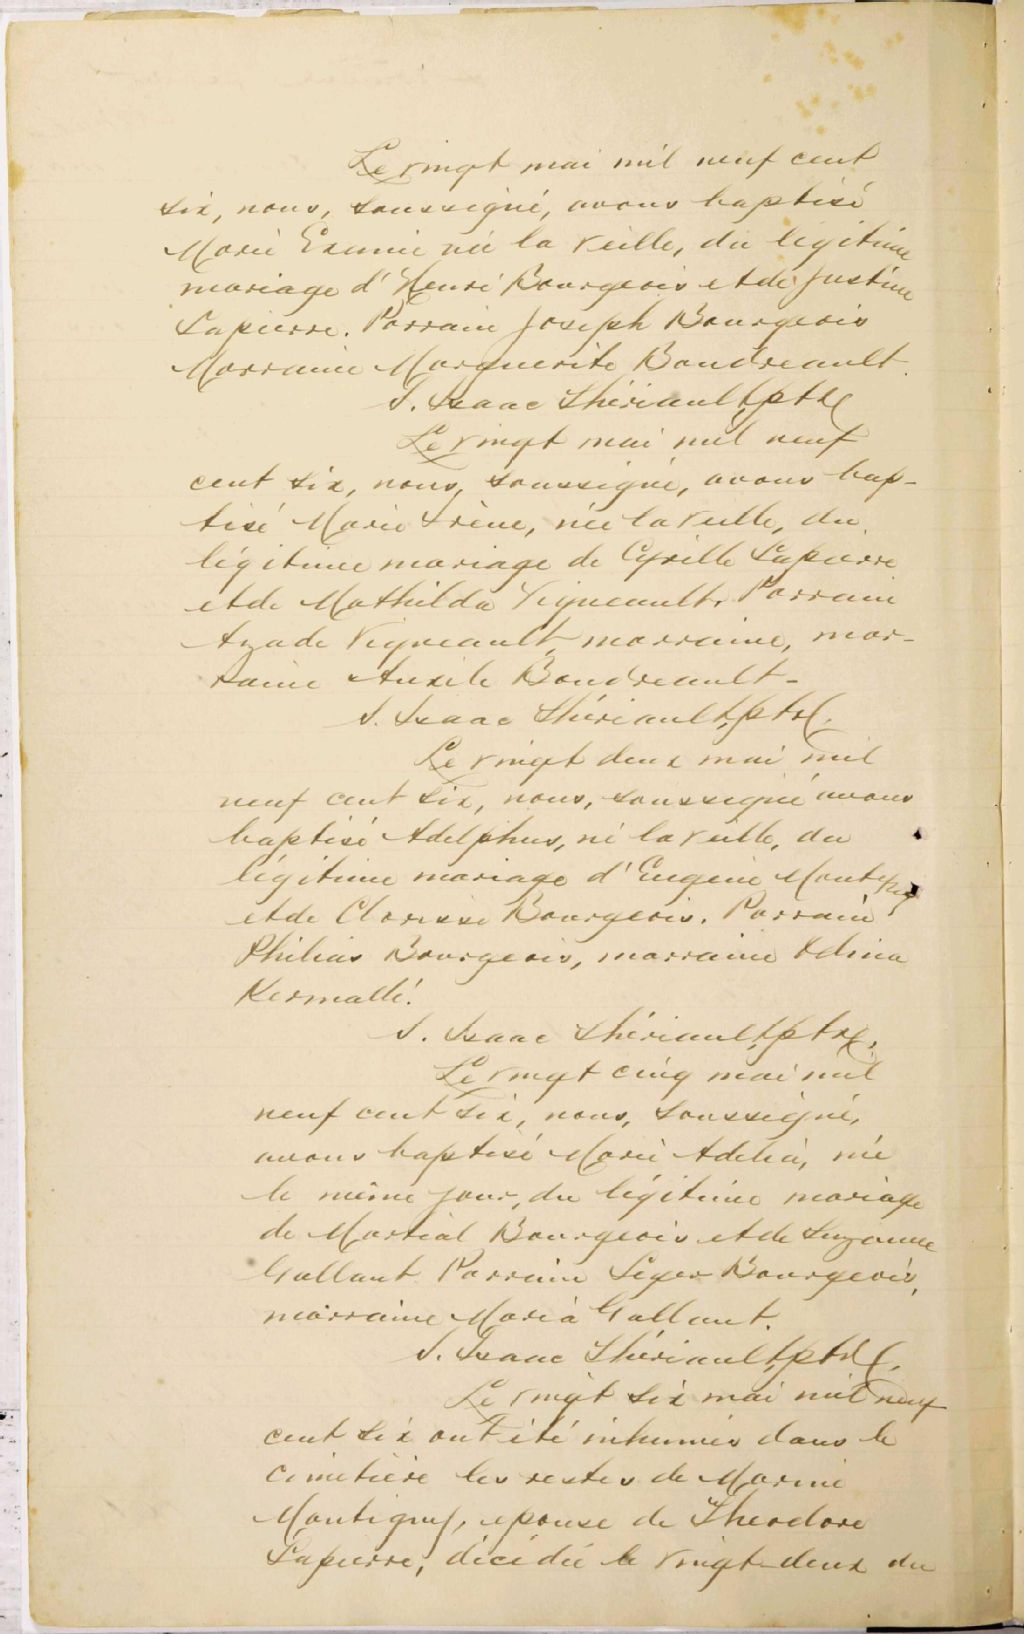 Le vingt mai mil neuf cent
six, nous, soussigné, avons baptisé
Marie Exunie née la veille, du légitime
mariage d'Henri Bourgeois et de Justine
Lapierre. Parrain Joseph Bourgeois
Marraine Marguerite Boudreault.
S. Isaac Thériault, ptre
Le vingt mai mil neuf
cent six, nous, soussigné, avons bap-
tisé Marie Irène, née la veille, du
légitime mariage de Cyrille Lapierre
et de Mathilda Vigneault. Parrain
Azade Vigneault marraine, mar-
raine Auxile Boudreault -
S. Isaac Thériault, ptre.
Le vingt deux mai mil
neuf cent six, nous, soussigné avons
baptisé Adelphus, né la veille, du
légitime mariage d'Eugène
et de Clarisse Bourgeois. Parrain
Philias Bourgeois, marraine Edmia
Kermallé.
S. Isaac Thériault, ptre.
Le vingt cinq mai mil
neuf cent six, nous, soussigné,
avons baptisé Marie Adelia, née
le même jour, du légitime mariage
de Martial Bourgeois et de Suzanne
Gallant Parrain Léger Bourgeois,
marraine Maria Gallant.
S. Isaac Thériault, ptre.
Le vingt six mai mil neuf
cent six ont été inhumés dans le
cimetière les restes de
Montigny, épouse de Theodore
Lapierre, décédée le vingt-deux du